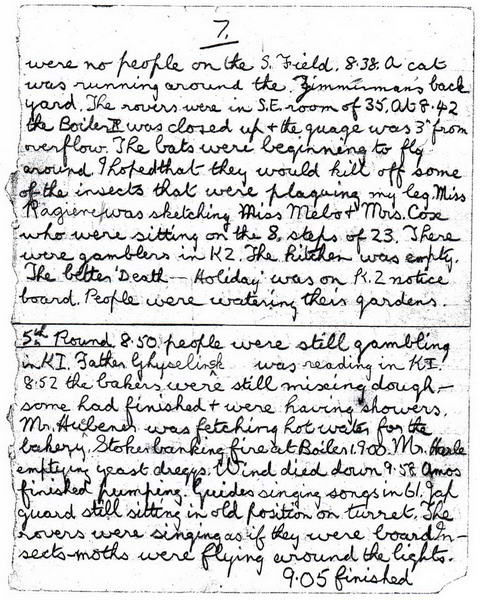 7.
were no people on the S. Field. 8.38. A cat
was running around the Zimmerman's back
yard. The rovers were in S.E room of 35. At 8.42
the Boiler was closed up & the guage was 3" from
overflow. The bats were beginning to fly
around. I hoped that they would kill off some
of the insects that were plaguing my leg. Miss
was sketching Miss & Mrs. Cox
who were sitting on the S. steps of 23. There
were gamblers in K2. The kitchen was empty.
The Death — Holiday was on K.2 notice
board. People were watering their gardens.
5th Round. 8.50 people were still gambling
in KI. Father Ghyselinck was reading in KI.
8.52 the bakers were still mixeing dough—
some had finished & were having showers.
Mr. Hubener was fetching hot water for the
bakery. Stoker banking fire at Boiler 1. 9.00. Mr.
emptying yeast dreggs. Wind died down 9.58 Amos
finished pumping. Guides singing songs in 61. Jap
guard still sitting in old position on turret. The
rovers were singing as if they were board. In-
sects-moths were flying around the lights.
9.05 finished